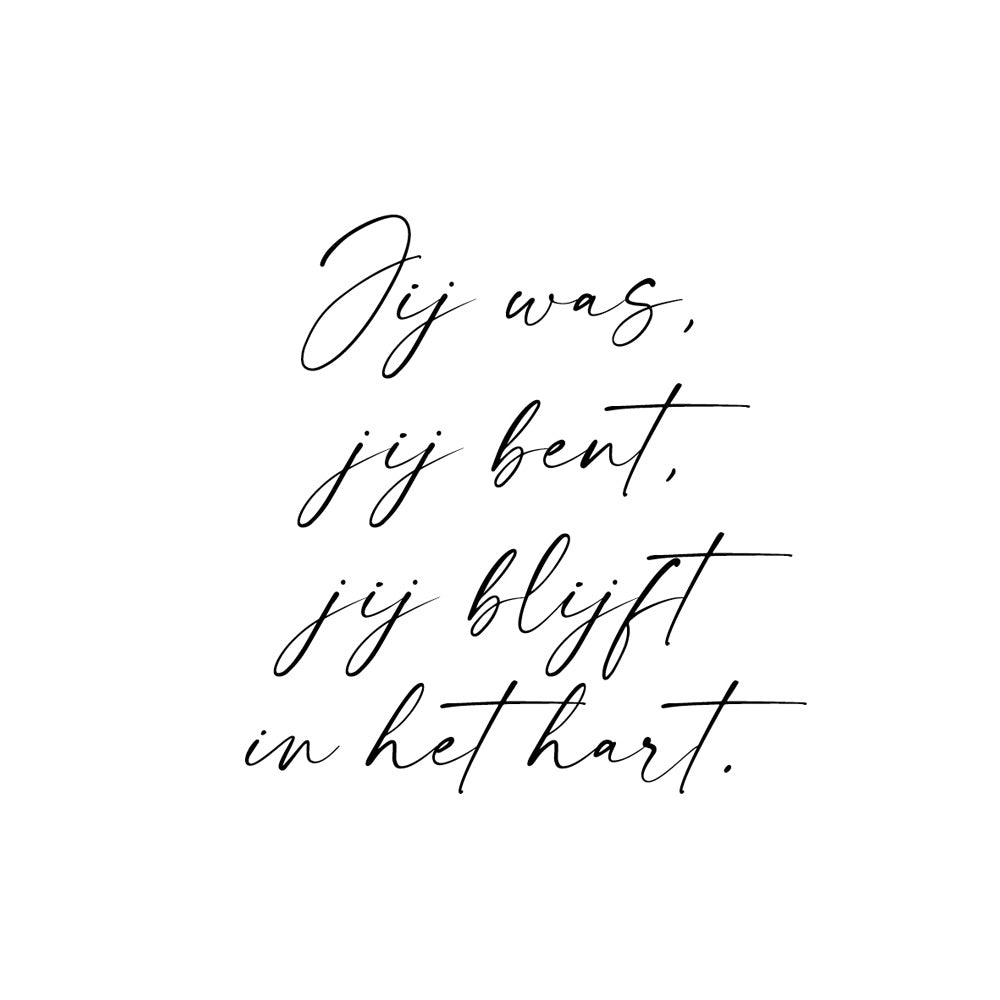 Jij was,
jij bent,
jij blijft
in het hart.